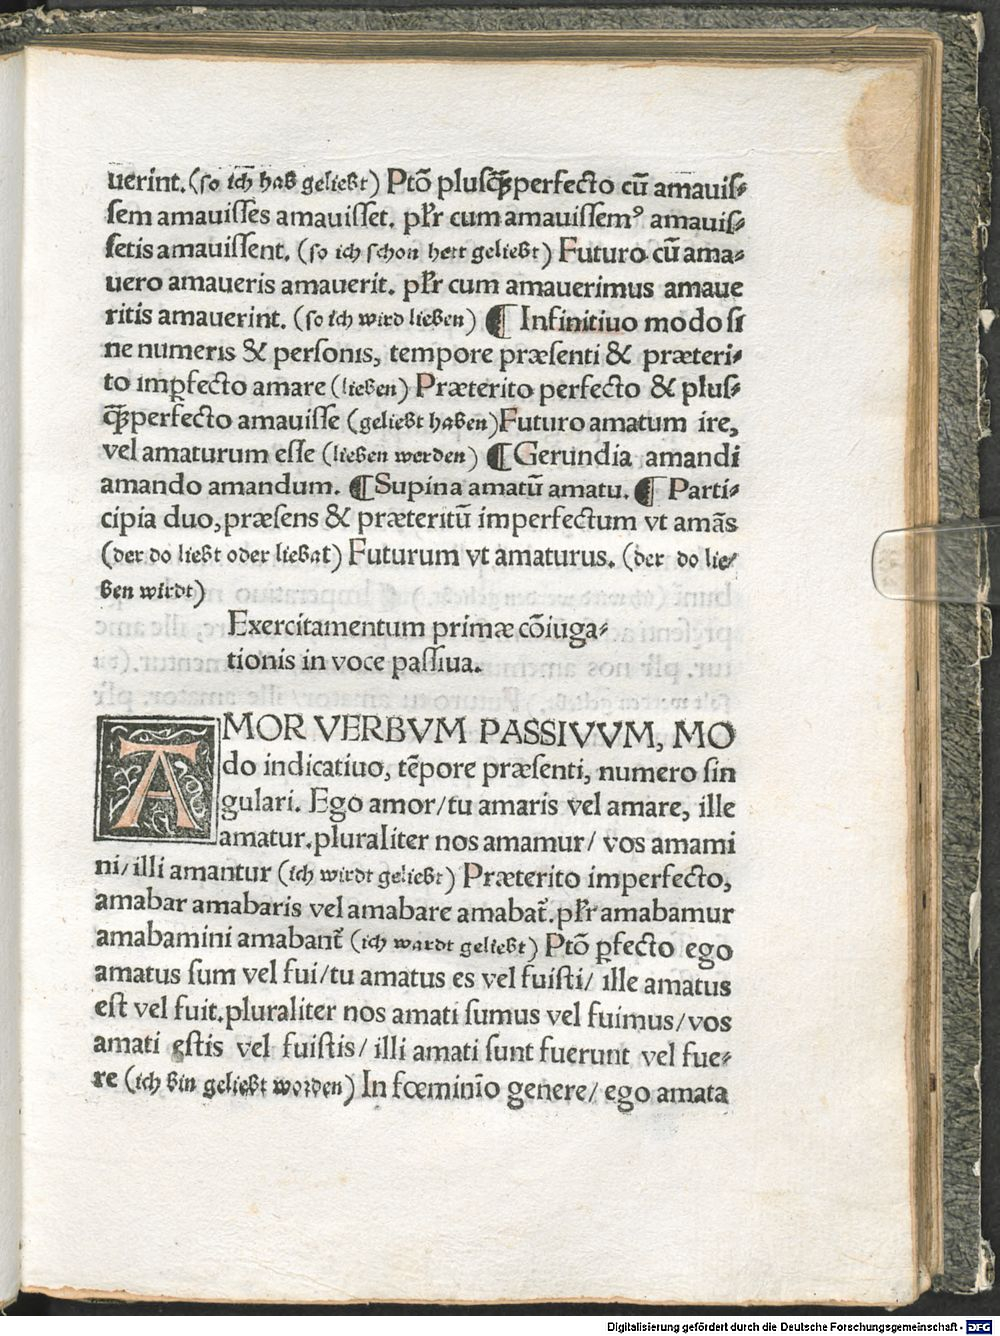 uerint. (so ich hab geliebt) Ptõ plusq̃perfecto cũ amauis⸗
sem amauisses amauisset. pl̃r cum amauissemꝰ amauis⸗
setis amauissent. (so ich schon hett geliebt) Futuro cũ ama⸗
uero amaueris amauerit. pl̃r cum amauerimus amaue
ritis amauerint. (so ich wird lieben) ¶ Infinitiuo modo si
ne numeris & personis, tempore præsenti & præteri⸗
to imꝑfecto amare (lieben) Præterito perfecto & plus⸗
q̃perfecto amauisse (geliebt haben) Futuro amatum ire,
vel amaturum esse (lieben werden) ¶ Gerundia amandi
amando amandum. ¶ Supina amatũ amatu. ¶ Parti⸗
cipia duo, præsens & præteritũ imperfectum vt amãs
(der do liebt oder liebat) Futurum vt amaturus. (der do lie⸗
ben wirdt)
Exercitamentum primæ cõiuga⸗
tionis in voce passiua.
AMOR VERBVM PASSIVVM, MO
do indicatiuo, tẽpore præsenti, numero sin
gulari. Ego amor/tu amaris vel amare, ille
amatur. pluraliter nos amamur/ vos amami
ni/ illi amantur (ich wirdt geliebt) Præterito imperfecto,
amabar amabaris vel amabare amabat̃. pl̃r amabamur
amabamini amabant̃ (ich wardt geliebt) Ptõ ꝑfecto ego
amatus sum vel fui/tu amatus es vel fuisti/ ille amatus
est vel fuit. pluraliter nos amati sumus vel fuimus/vos
amati estis vel fuistis/ illi amati sunt fuerunt vel fue⸗
re (ich bin geliebt worden) In fœminĩo genere/ ego amata
Digitalisierung gefördert durch die Deutsche Forschungsgemeinschaft - DFG